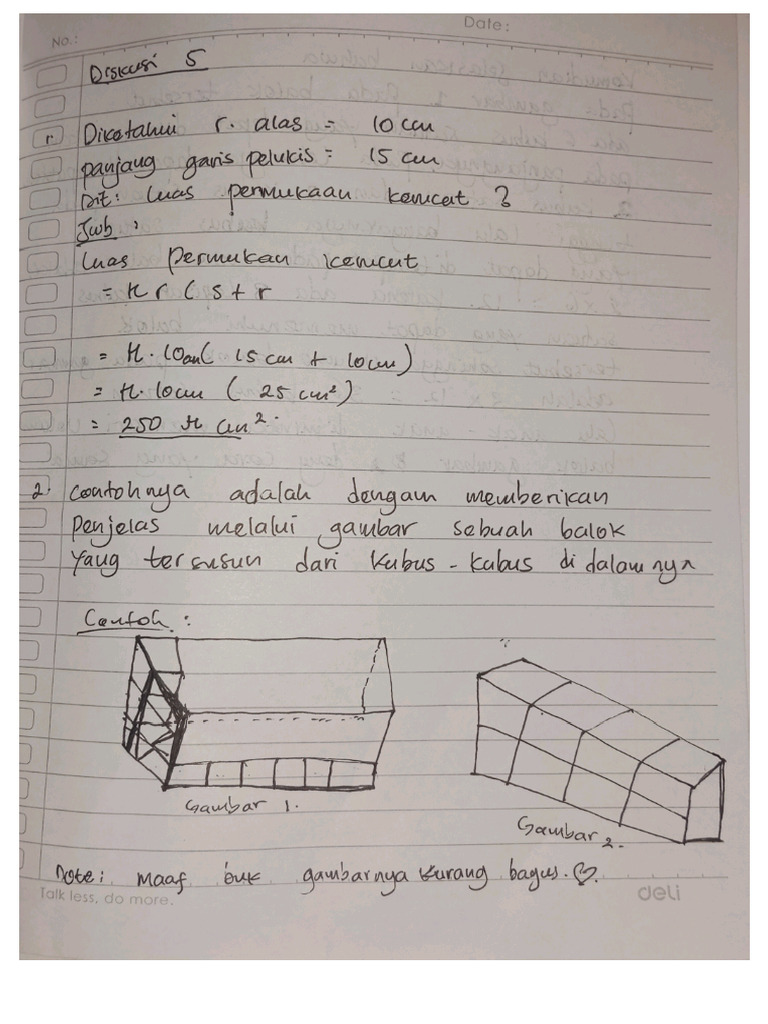 Date:
No.:
Diskusi 5
1. Diketahui r. alas = 10 cm
panjang garis pelukis = 15 cm
Dit: Luas permukaan kerucut ?
Jwb :
Luas Permukan kerucut
= π r ( s + r
= π. 10cm ( 15 cm + 10 cm )
= π. 10 cm ( 25 cm²)
= 250 π cm².
2. Contohnya adalah dengan memberikan
penjelas melalui gambar sebuah balok
yang tersusun dari kubus - kubus di dalamnya
Contoh :
Gambar 1.
Gambar 2.
Note: maaf buk gambarnya kurang bagus.
Talk less, do more.
deli